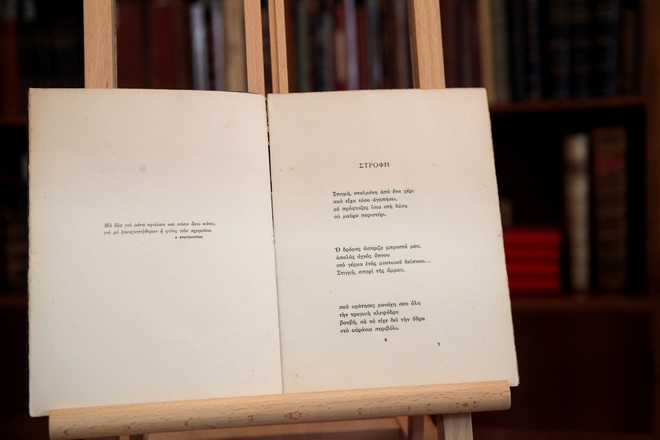 Μὰ ὅλα γιὰ μένα σφάλασι καὶ πᾶσιν ἄνω κάτω,
γιὰ μὲ ξαναγεννήθηκεν ἡ φύση τῶν πραμάτω.
Ο ΕΡΩΤΟΚΡΙΤΟΣ
ΣΤΡΟΦΗ
Στιγμή, σταλμένη ἀπὸ ἕνα χέρι
ποὺ εἶχα τόσο ἀγαπήσει,
μὲ πρόφταξες ἴσια στὴ δύση
σὰ μαῦρο περιστέρι.
Ὁ δρόμος ἄσπριζε μπροστά μου,
ἁπαλὸς ἀχνὸς ὕπνου
στὸ γέρμα ἑνὸς μυστικοῦ δείπνου...
Στιγμή, σπυρὶ τῆς ἄμμου,
ποὺ κράτησες μονάχη σου ὅλη
τὴν τραγικὴ κλεψύδρα
βουβή, σὰ νὰ εἶχε δεῖ τὴν Ὕδρα
στὸ οὐράνιο περιβόλι.
9
2